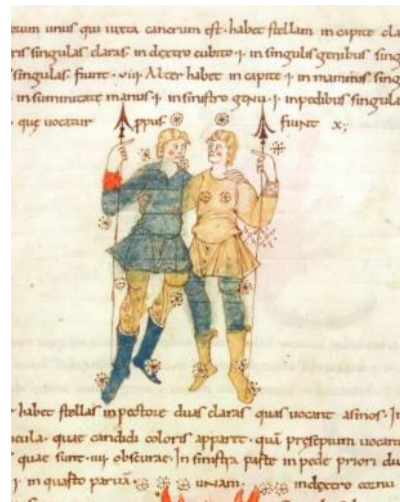 unus qui iuxta cancrum est · habet stellam in capite cla
singulas claras · in dextro cubito · i · in singulis genibus sing
singulas · fiunt · viii · Alter habet in capite · i · in mamillis sing
in sinistro genu · i · in pedibus singula
· que uocatur ppus · fiunt x ;
· habet stellas in pectore duas claras quas uocant asinos · In
cula · quae candidi coloris apparet · quã presepium uocant
quae sunt · iiii · obscurae · In sinistra parte in pede priori du
i · in quarto paruã · unam · in dextro cornu